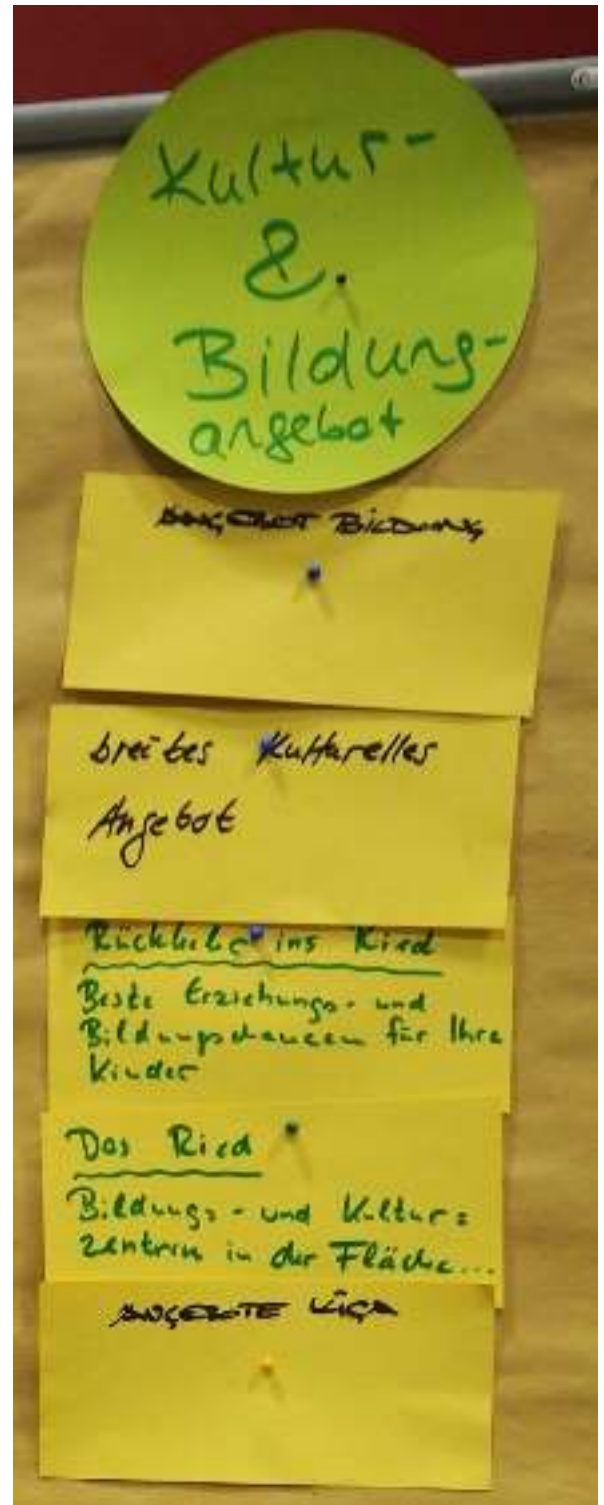 Kultur-
&
Bildung-
angebot
ANGEBOT BILDUNG
breites Kulturelles
Angebot
ins Ried
Beste Erziehungs- und
Bildungschancen für Ihre
Kinder
Das Ried
Bildungs- und Kultur=
zentrum in der Fläche...
ANGEBOTE